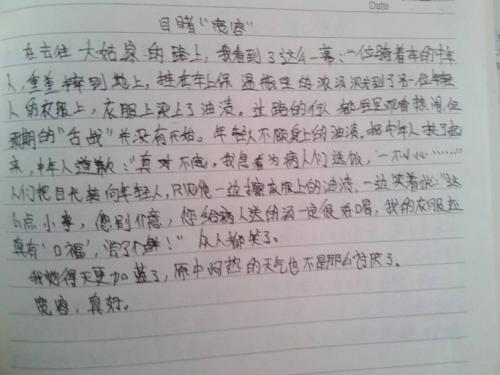 Date
目睹“宽容”
在去往大姑家的路上，我看到了这么一幕：一位骑着车的中年
人，重重摔到地上，挂在车上保温瓶里的浓汤溅到了另一位年轻
人的衣服上，衣服上染上了油渍。过路的行人都围观看热闹，但
预期的“舌战”并没有开始。年轻人不顾身上的油渍，把中年人扶了起
来，中年人道歉：“真对不起，我急着为病人们送饭，一不小心……”
人们把目光转向年轻人，只见他一边擦衣服上的油渍，一边笑着说：“这
么点小事，您别介意，您给病人送的汤一定很好喝，我的衣服拉
真有‘口福’，尝了个鲜！”众人都笑了。
我觉得天更加蓝了，原本闷热的天气也不是那么讨厌了。
宽容，真好。